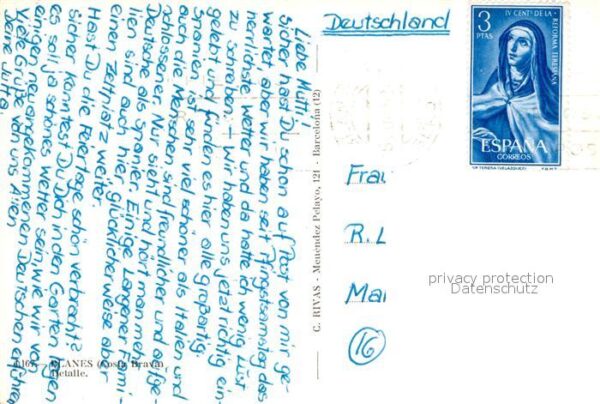 Liebe Mutti!
Sicher hast Du schon auf Post von mir ge-
wartet, aber wir haben seit Pfingstsamstag das
herrlichste Wetter und da hatte ich wenig Lust
zu schreiben – wir haben uns jetzt richtig ein-
gelebt und finden es hier alle großartig.
Spanien ist sehr viel schöner als Italien und
auch die Menschen sind freundlicher und aufge-
schlossener. Nur sieht und hört man mehr
Deutsche als Spanier. Einige Langener Fami-
lien sind auch hier, glücklicherweise aber
ein Zeltplatz weiter.
Hast Du die Feiertage schön verbracht?
Sicher konntest Du Dich in den Garten legen
es soll ja schönes Wetter sein wie wir von
einigen neuangekommenen Deutschen erfuhren
Viele Grüße von uns Allen
Deine Jutta
BLANES (Costa Brava)
Detalle.
C. RIVAS - Menendez Pelayo, 121 - Barcelona (12)
Deutschland
3
PTAS
IV CENT. DE LA
REFORMA TERESIANA
ESPAÑA
CORREOS
Frau
R. L
Mai
16
privacy protection
Datenschutz